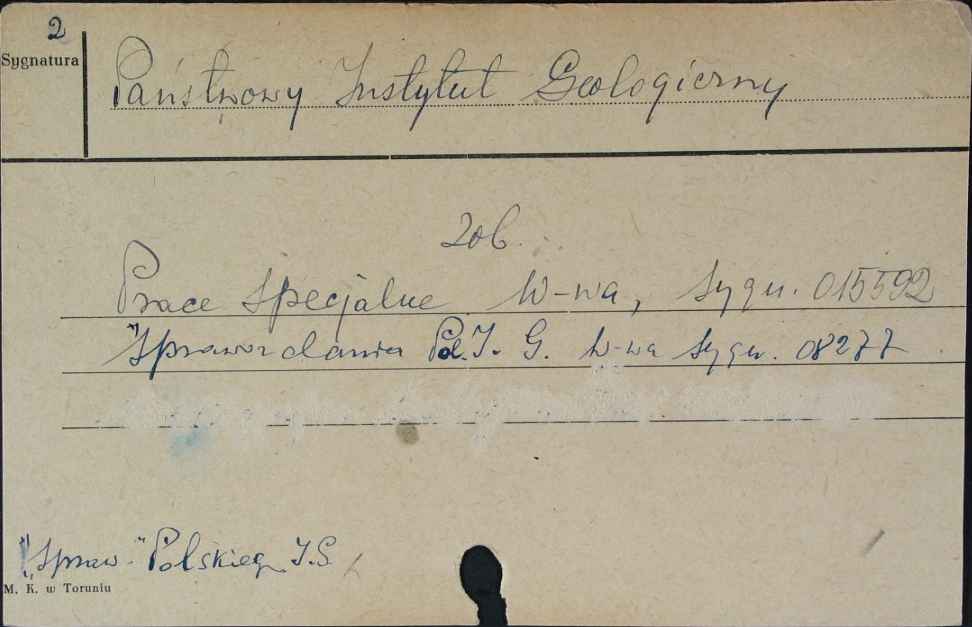 2
Sygnatura
Państwowy Instytut Geologiczny
Zob.
Prace Specjalne W-wa, Sygn. 015592
"Sprawozdania Pol. I. G. W-wa Sygn. 08277
"Spraw." Polskieg I.G.
M. K. w Toruniu